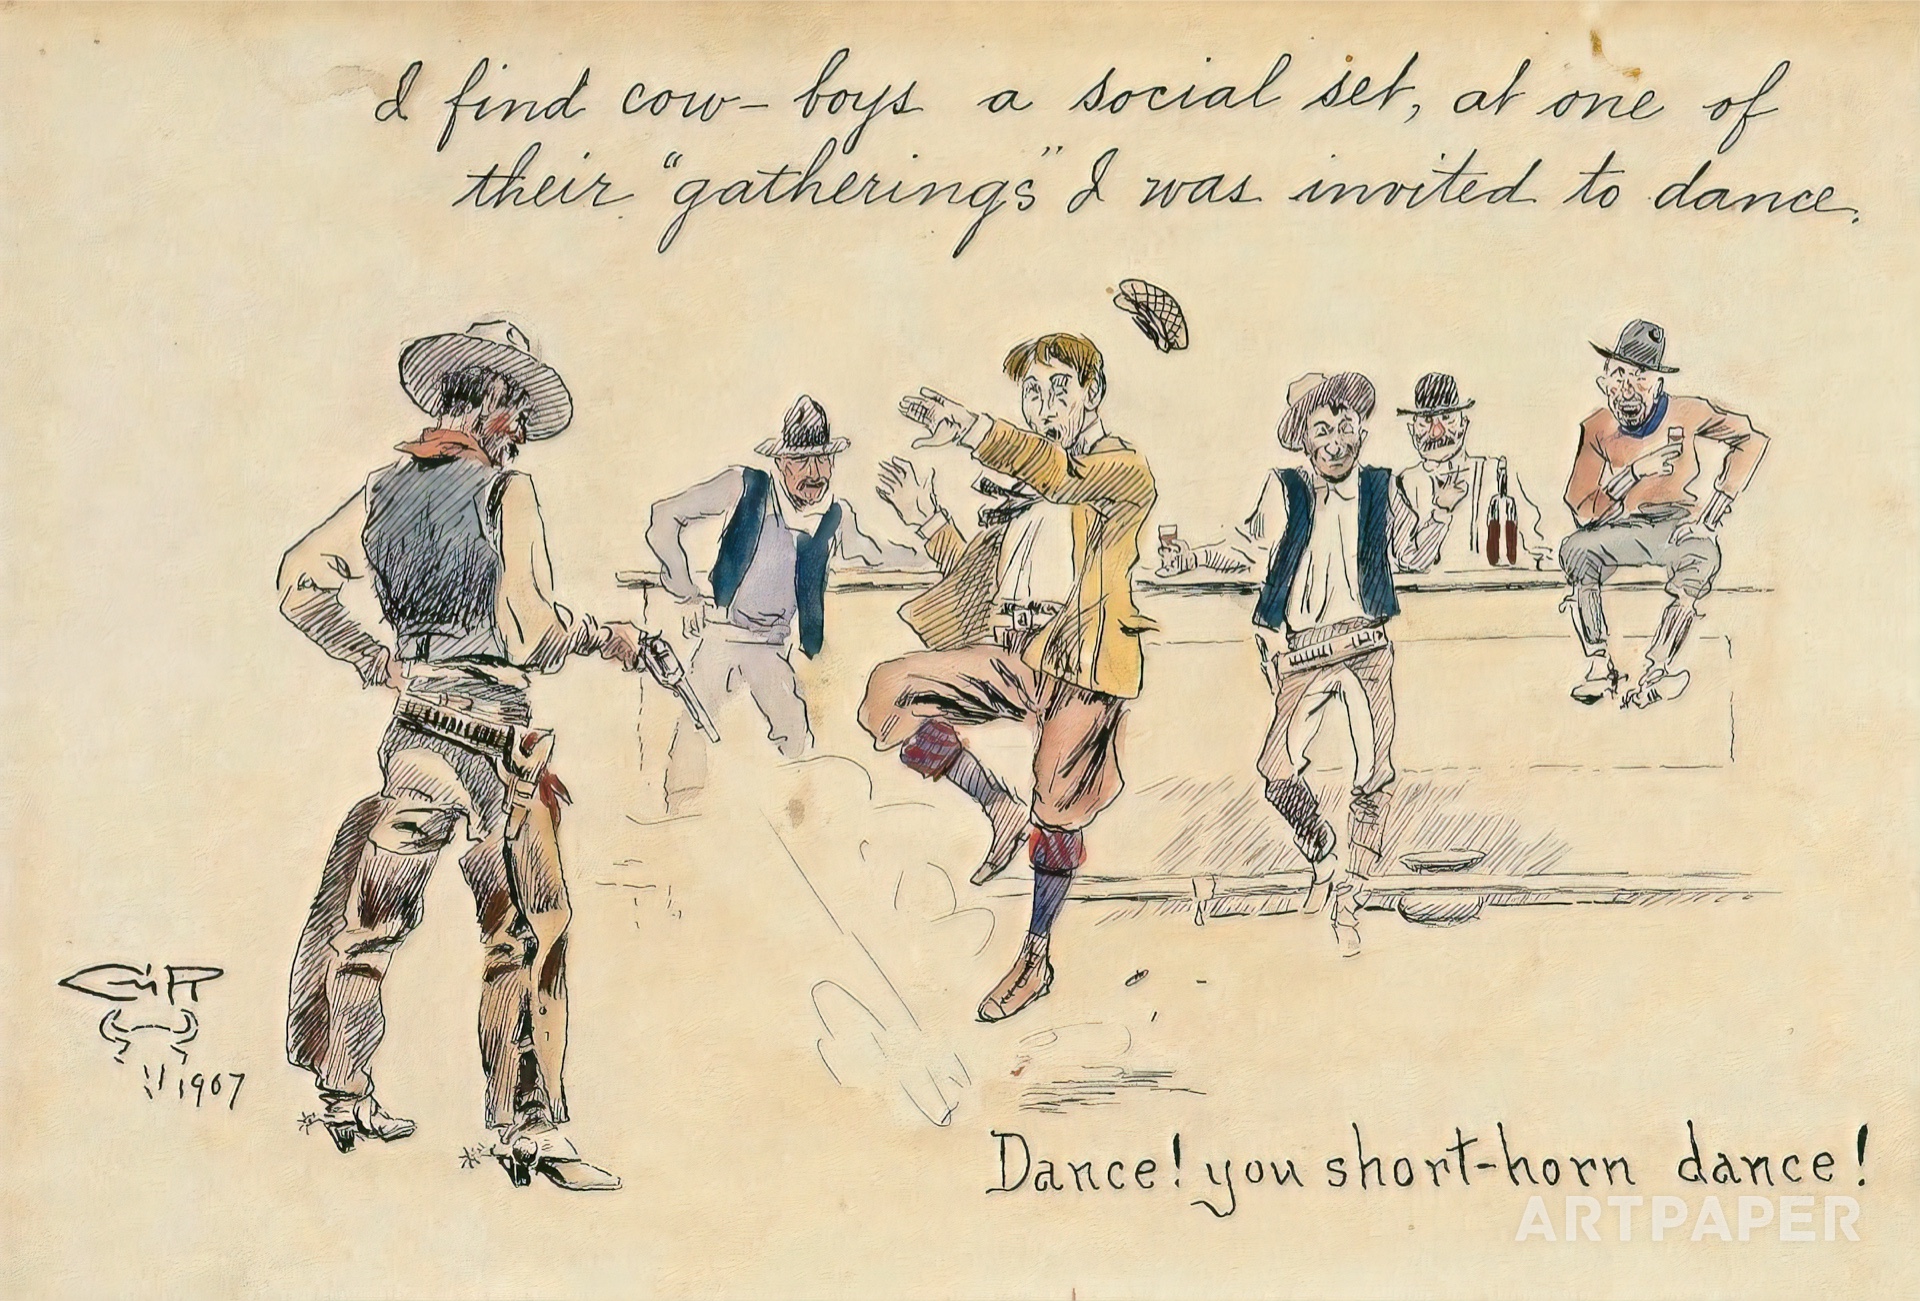 I find cow-boys a social set, at one of
their "gatherings" I was invited to dance.
CMR
1907
Dance! you short-horn dance!
ARTPAPER